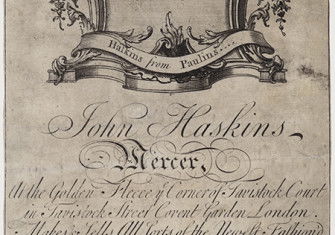 Haskins from Paulins...
John Haskins
Mercer,
At the Golden Fleece ye Corner of Tavistock Court
in Tavistock Street Covent Garden London.
Makes & Sells All Sorts of the Newest Fashion'd